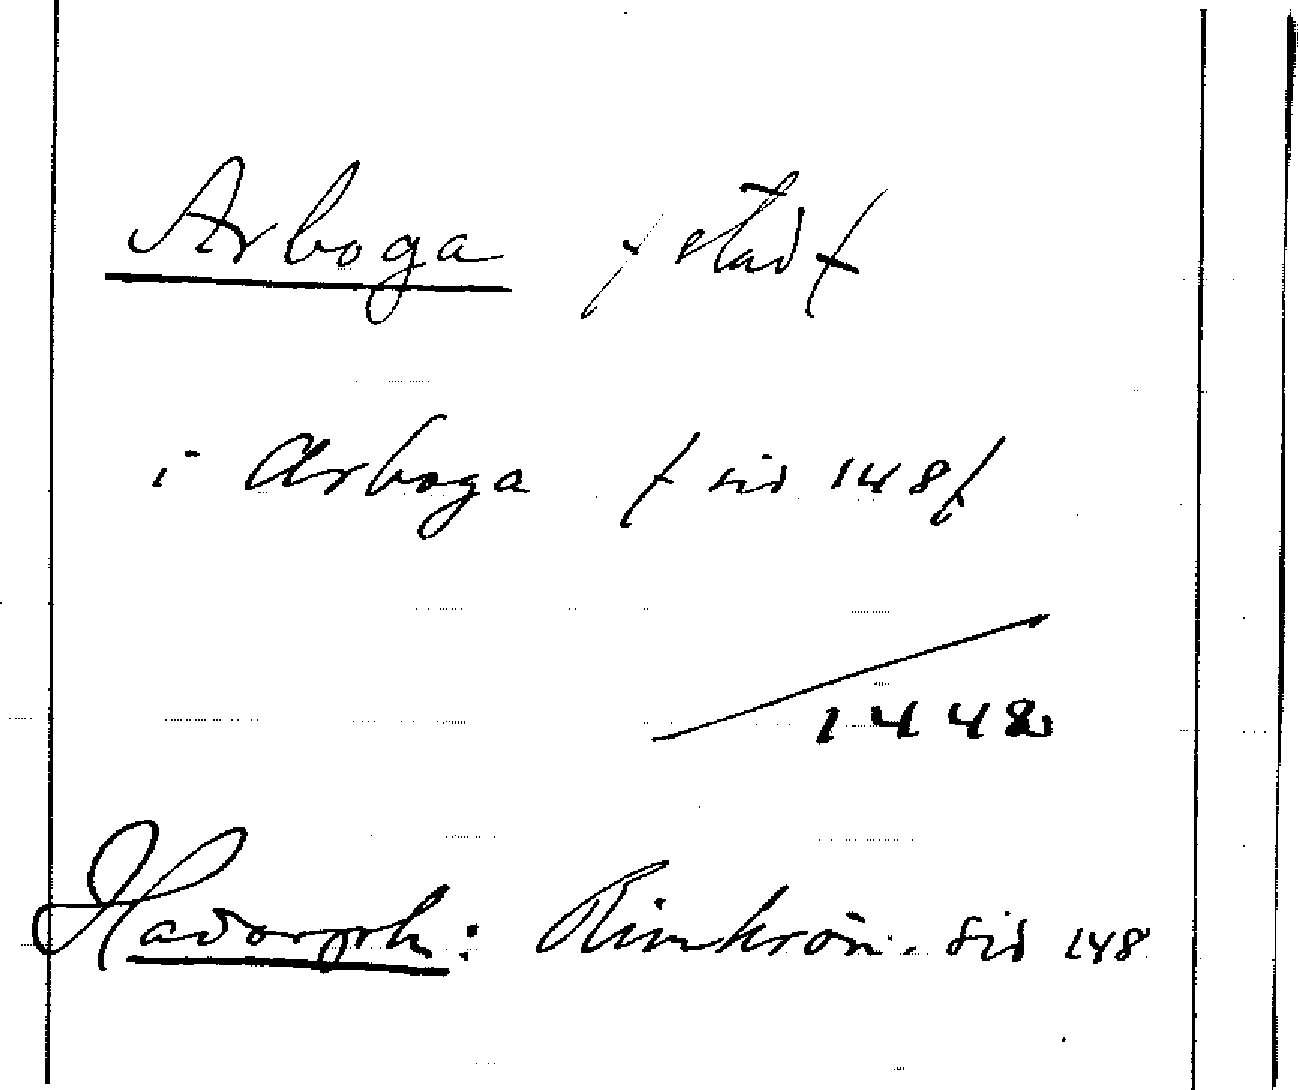 Arboga / stad /
i Arboga / sid 148 /
1448
Hadorph: Rimkrön. sid 148